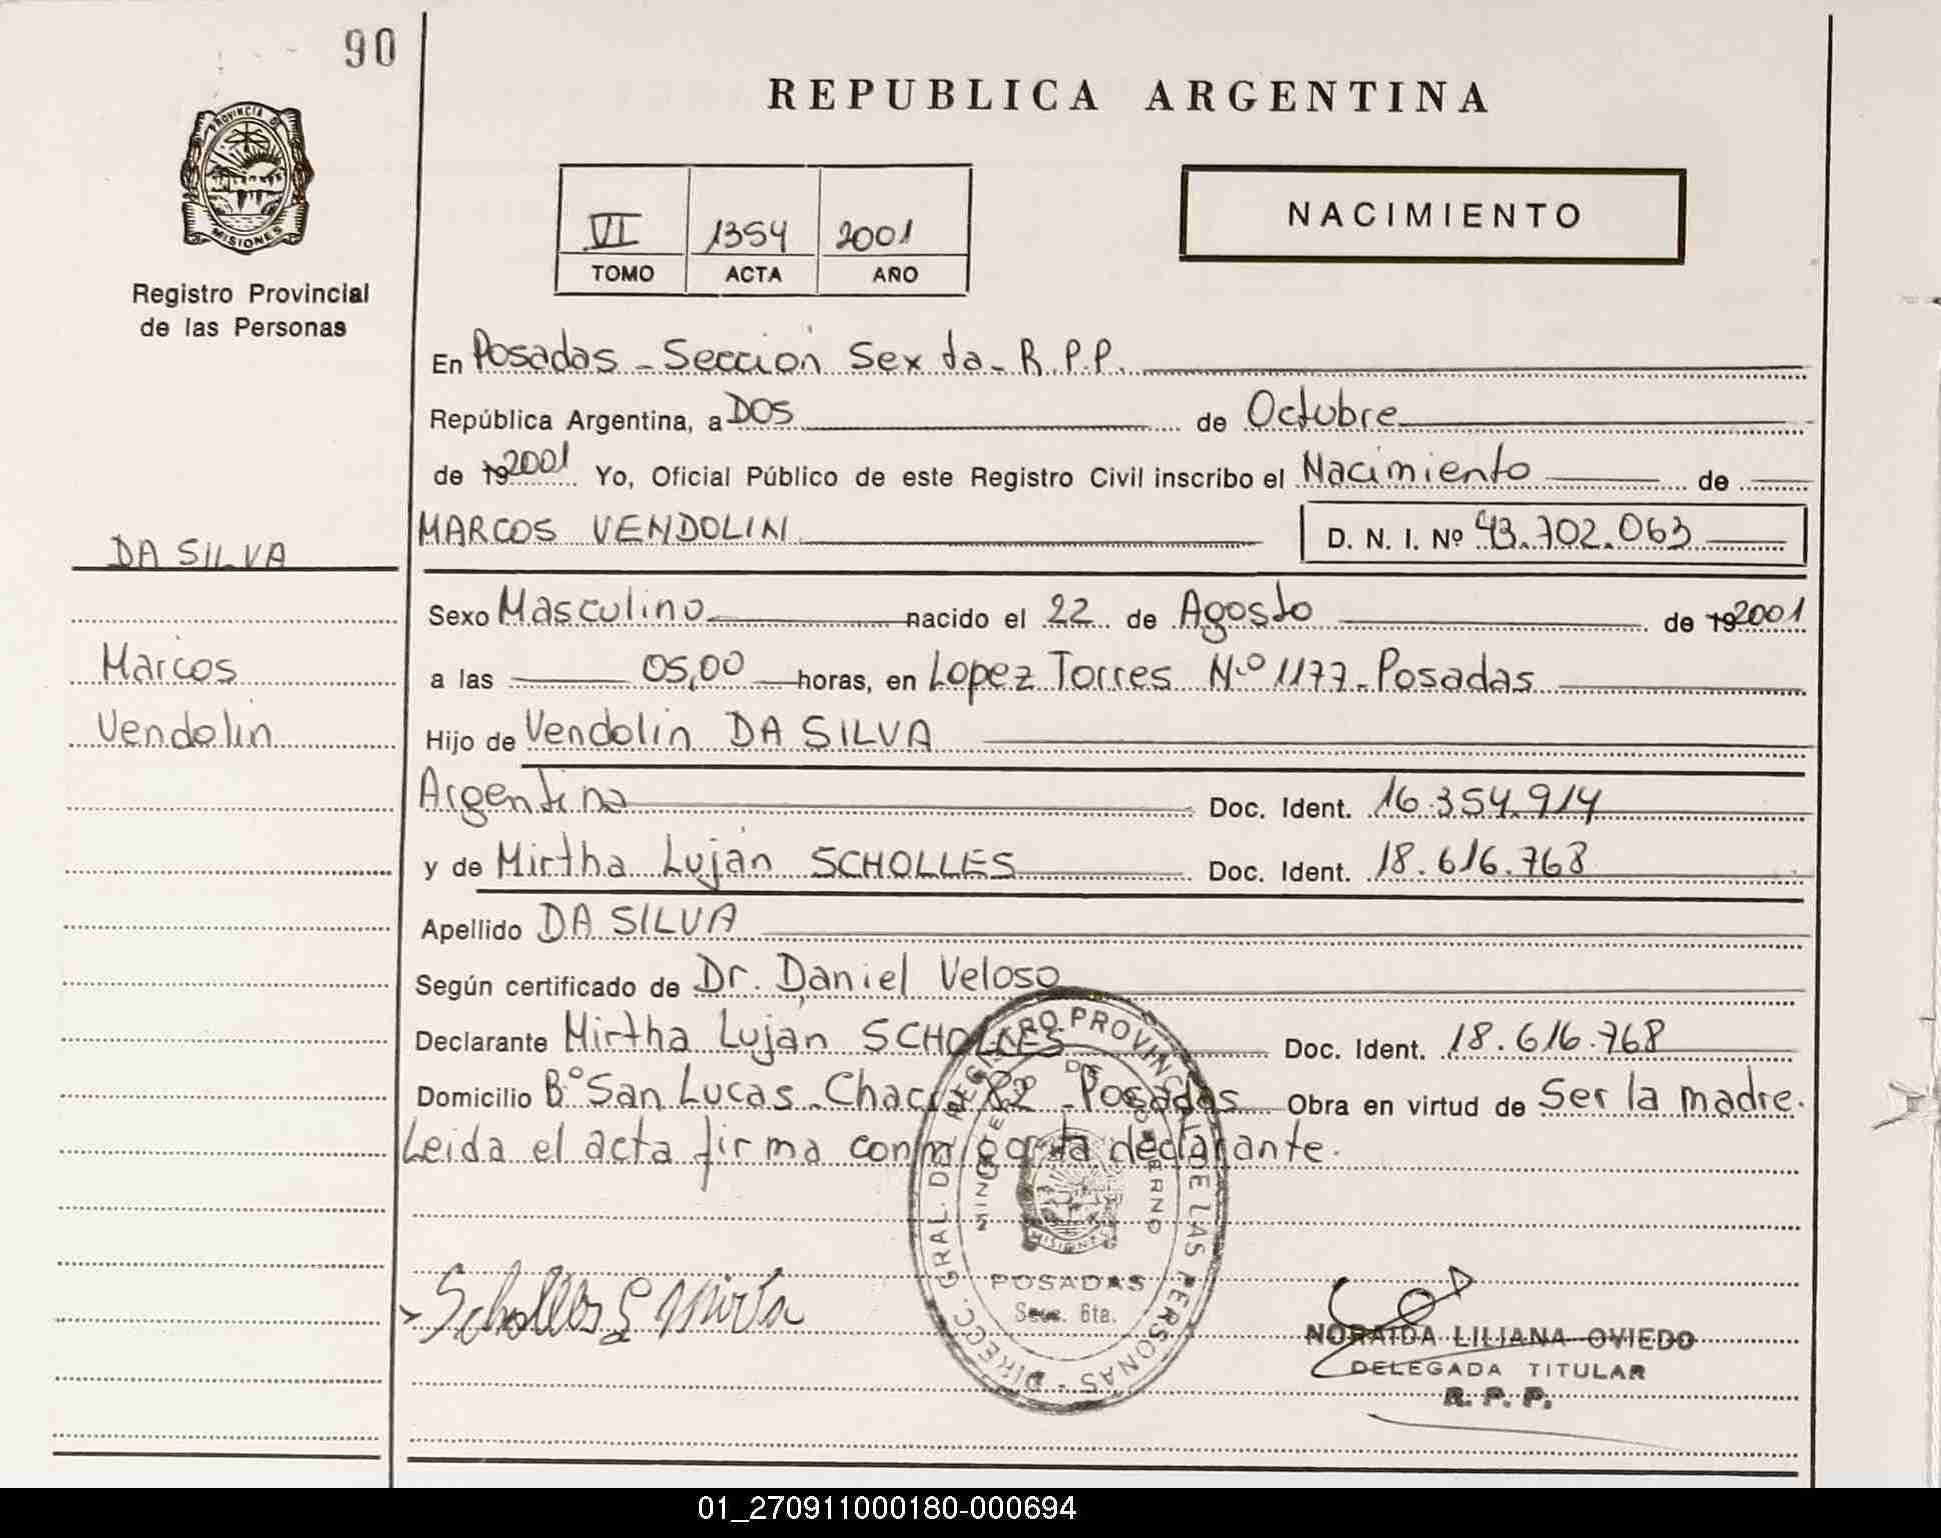 90
REPUBLICA ARGENTINA
PROVINCIA DE
MISIONES
Registro Provincial
de las Personas
VI 1354 2001
TOMO ACTA AÑO
NACIMIENTO
En Posadas - Sección Sexta - R.P.P.
República Argentina, a DOS de Octubre
de 192001 Yo, Oficial Público de este Registro Civil inscribo el Nacimiento de
DA SILVA
MARCOS VENDOLIN D. N. I. Nº 43.702.063
Sexo Masculino nacido el 22 de Agosto de 192001
Marcos
a las 05,00 horas, en Lopez Torres N.º 1177 - Posadas
Vendolin
Hijo de Vendolin DA SILVA
Argentina Doc. Ident. 16.354.914
y de Mirtha Luján SCHOLLES Doc. Ident. 18.616.768
Apellido DA SILVA
Según certificado de Dr. Daniel Veloso
Declarante Mirtha Luján SCHOLLES Doc. Ident. 18.616.768
Domicilio Bº San Lucas - Chacra 82 - Posadas Obra en virtud de Ser la madre.
Leida el acta firma conmigo la declarante.
DIRECC. GRAL. DEL REGISTRO PROVINCIAL DE LAS PERSONAS
DE GOBIERNO
MISIONES
POSADAS
Secc. 6ta.
Scholles Mirta
NORAIDA LILIANA OVIEDO
DELEGADA TITULAR
R. P. P.
01_270911000180-000694